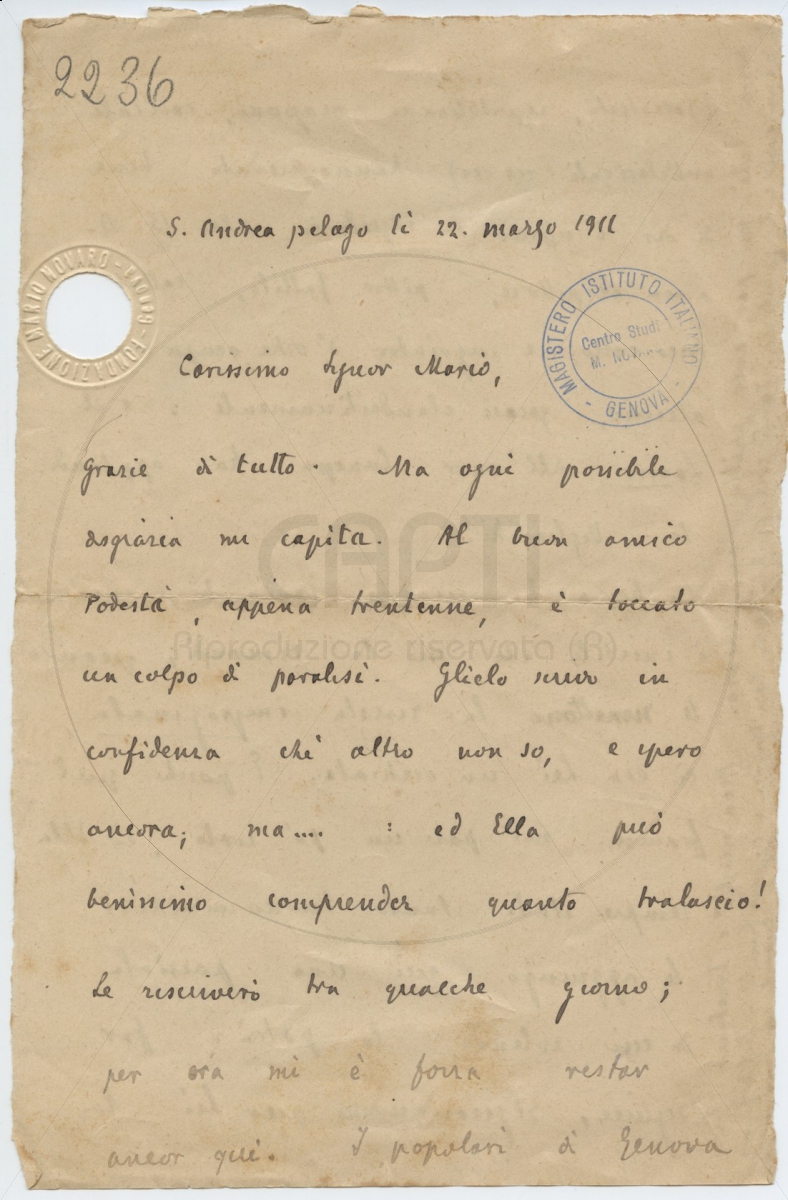 2236
S. Andrea pelago li 22. marzo 1911
FONDAZIONE MARIO NOVARO - GENOVA -
MAGISTERO ISTITUTO ITAL
Centro Studi
M. NOV
- GENOVA -
Carissimo Signor Mario,
grazie di tutto. Ma ogni possibile
disgrazia mi capita. Al buon amico
Podestà, appena trentenne, è toccato
un colpo di paralisi. Glielo scrivo in
confidenza chè altro non so, e spero
ancora; ma.... : ed Ella può
benissimo comprender quanto tralascio!
Le riscriverò tra qualche giorno;
per ora mi è forza restar
ancor qui. I popolari di Genova
CAPTI
Riproduzione riservata (R)